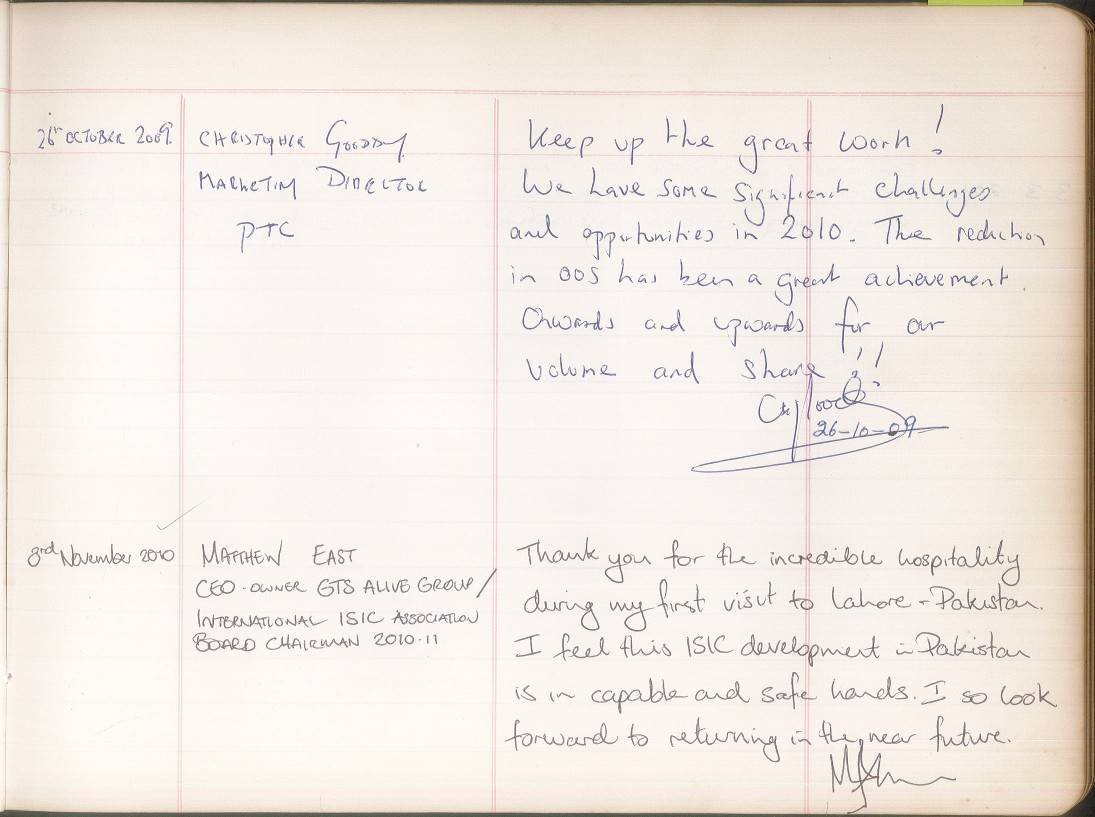 26th OCTOBER 2009.
CHRISTOPHER
MARKETING DIRECTOR
PTC
Keep up the great work!
We have some significant challenges
and opportunities in 2010. The reduction
in OOS has been a great achievement.
Onwards and upwards for our
volume and share!!
26-10-09
3rd November 2010
MATTHEW EAST
CEO-OWNER GTS ALIVE GROUP/
INTERNATIONAL ISIC ASSOCIATION
BOARD CHAIRMAN 2010-11
Thank you for the incredible hospitality
during my first visit to Lahore - Pakistan.
I feel this ISIC development in Pakistan
is in capable and safe hands. I so look
forward to returning in the near future.